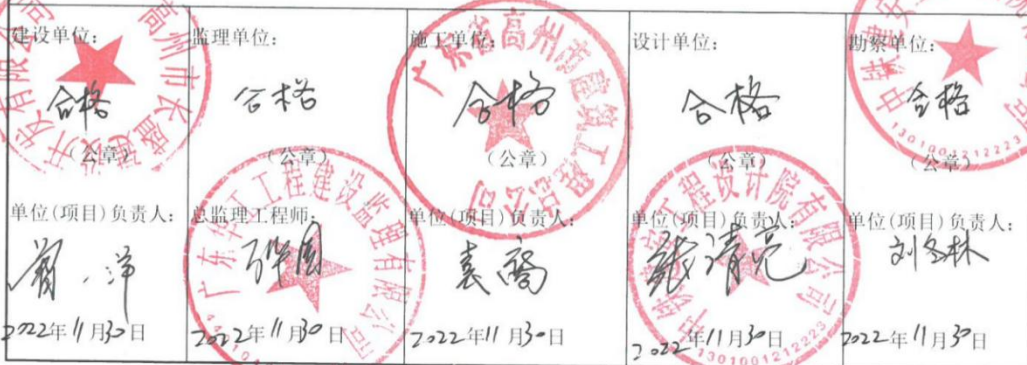 建设单位：
监理单位：
施工单位：
设计单位：
勘察单位：
合格
合格
合格
合格
合格
（公章）
（公章）
（公章）
（公章）
（公章）
单位(项目)负责人：
总监理工程师：
单位(项目)负责人：
单位(项目)负责人：
单位(项目)负责人：
刘冬林
2022年11月30日
2022年11月30日
2022年11月30日
2022年11月30日
2022年11月30日
高州市长盛建设开发有限公司
广东华工工程建设监理有限公司
广东省高州市建筑工程总公司
工程设计院有限公司
1301001212223